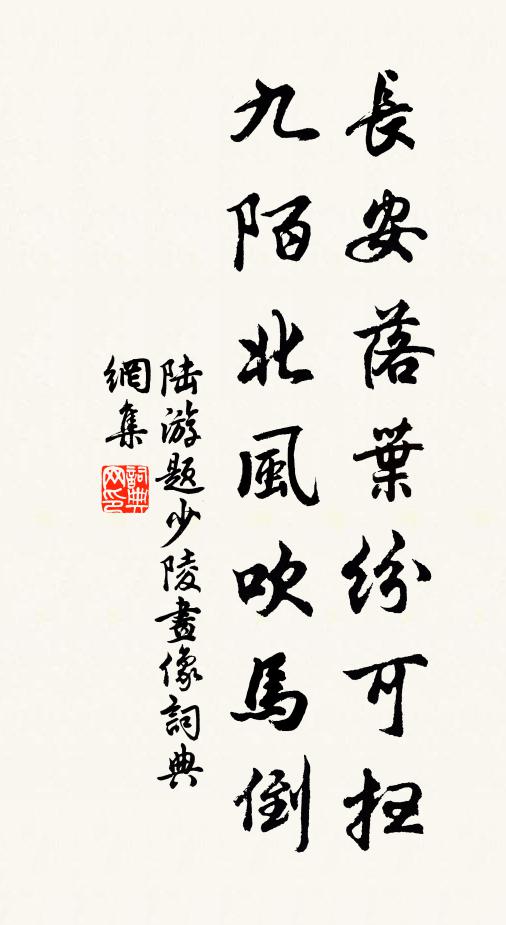 長安落葉紛可扫
九陌北風吹馬倒
陆游题少陵畫像詞典
網集
詞典
网印